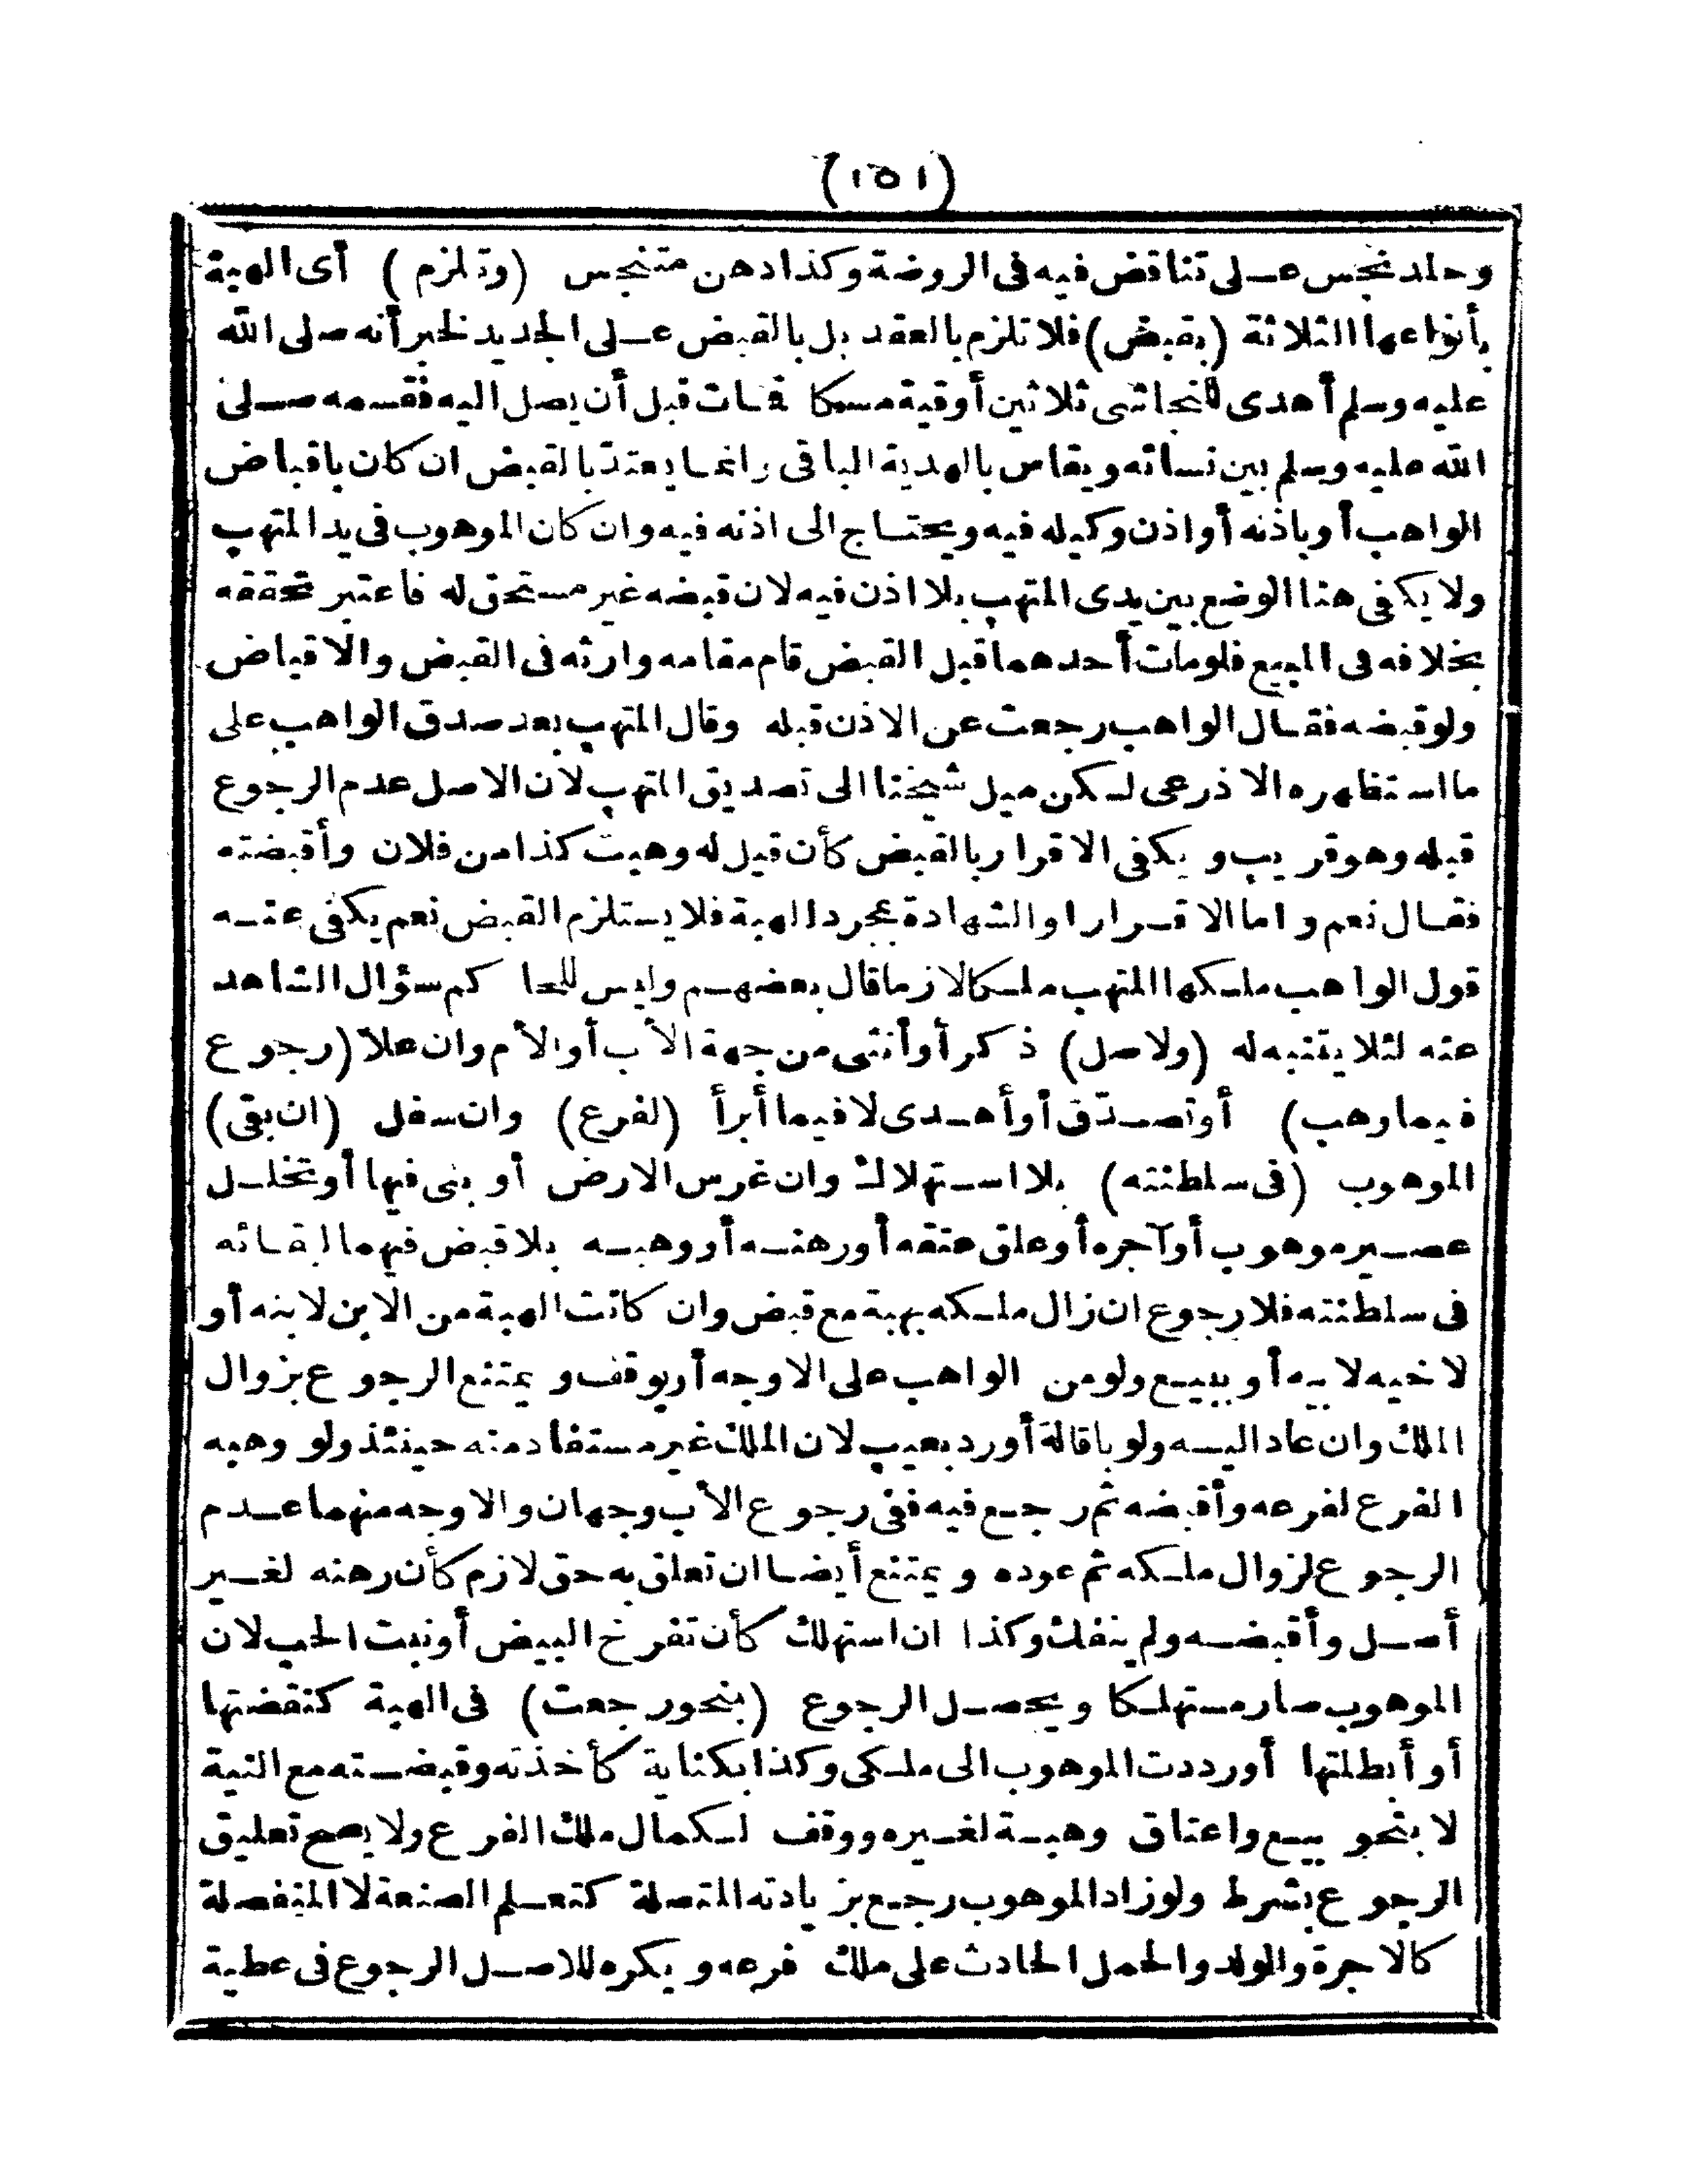 (١٥١)
وجلد نجس على تناقض فيه فى الروضة وكذا دهن متنجس (وتلزم) أى الهبة
بأنواعها الثلاثة (بقبض) فلا تلزم بالعقد بل بالقبض على الجديد لخبر أنه صلى الله
عليه وسلم أهدى للنجاشى ثلاثين أوقية مسكا فمات قبل أن يصل اليه فقسمه صلى
الله عليه وسلم بين نسائه ويقاس بالهدية الباقى وانما يعتد بالقبض ان كان باقباض
الواهب أو باذنه أو اذن وكيله فيه ويحتاج الى اذنه فيه وان كان الموهوب فى يد المتهب
ولا يكفى هنا الوضع بين يدى المتهب بلا اذن فيه لان قبضه غير مستحق له فاعتبر تحققه
بخلافه فى المبيع فلو مات أحدهما قبل القبض قام مقامه وارثه فى القبض والاقباض
ولو قبضه فقال الواهب رجعت عن الاذن قبله وقال المتهب بعد صدق الواهب على
ما استظهره الاذرعى لكن ميل شيخنا الى تصديق المتهب لان الاصل عدم الرجوع
قبله وهو قريب ويكفى الاقرار بالقبض كأن قيل له وهبت كذا من فلان وأقبضته
فقال نعم واما الاقرار او الشهادة بمجرد الهبة فلا يستلزم القبض نعم يكفى عنه
قول الواهب ملكها المتهب ملكا لازما قال بعضهم وليس للحاكم سؤال الشاهد
عنه لئلا يتنبه له (ولاصل) ذكر أو أنثى من جهة الأب أو الأم وان علا (رجوع
فيما وهب) أو تصدق أو أهدى لا فيما أبرأ (لفرع) وان سفل (ان بقى)
الموهوب (فى سلطنته) بلا استهلاك وان غرس الارض أو بنى فيها أو تخلل
عصير موهوب أو آجره أو علق عتقه أو رهنه أو وهبه بلا قبض فيهما لبقائه
فى سلطنته فلا رجوع ان زال ملكه بهبة مع قبض وان كانت الهبة من الابن لابنه أو
لاخيه لابيه أو ببيع ولو من الواهب على الاوجه أو بوقف ويمتنع الرجوع بزوال
الملك وان عاد اليه ولو باقالة أو رد بعيب لان الملك غير مستفاد منه حينئذ ولو وهبه
الفرع لفرعه وأقبضه ثم رجع فيه ففى رجوع الأب وجهان والاوجه منهما عدم
الرجوع لزوال ملكه ثم عوده ويمتنع أيضا ان تعلق به حق لازم كأن رهنه لغير
أصل وأقبضه ولم ينفك وكذا ان استهلك كأن تفرخ البيض أو نبت الحب لان
الموهوب صار مستهلكا ويحصل الرجوع (بنحو رجعت) فى الهبة كنقضتها
أو أبطلتها أو رددت الموهوب الى ملكى وكذا بكناية كأخذته وقبضته مع النية
لا بنحو بيع واعتاق وهبة لغيره ووقف لكمال ملك الفرع ولا يصح تعليق
الرجوع بشرط ولو زاد الموهوب رجع بزيادته المتصلة كتعلم الصنعة لا المنفصلة
كالاجرة والولد والحمل الحادث على ملك فرعه ويكره للاصل الرجوع فى عطية